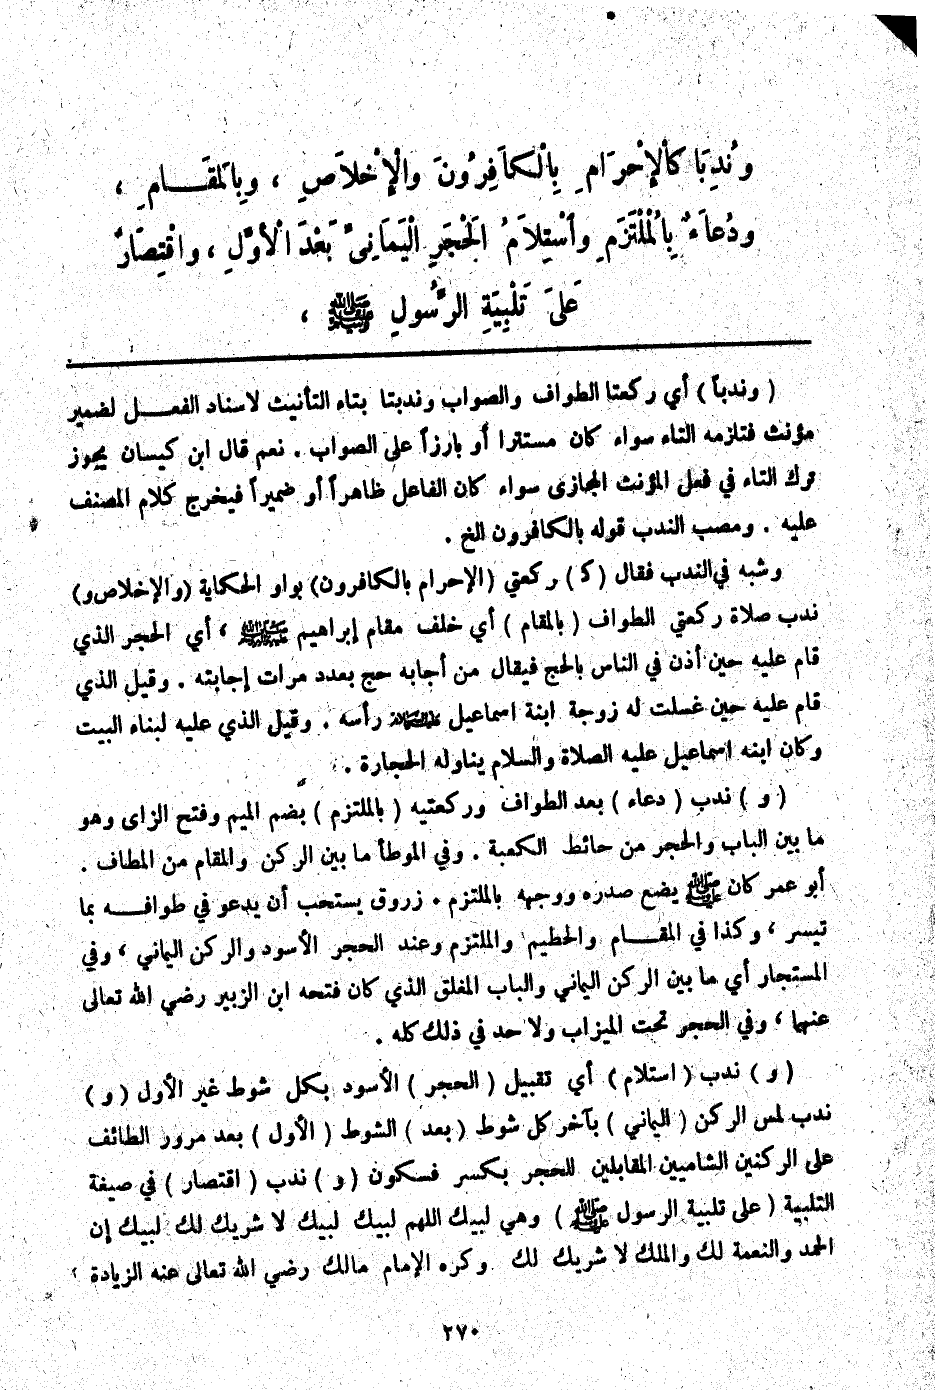 وَنُدِبَا كَالْإِحْرَامِ بِالْكَافِرُونَ وَالْإِخْلَاصِ ، وَبِالْمَقَامِ ،
وَدُعَاءٌ بِالْمُلْتَزَمِ وَاسْتِلَامُ الْحَجَرِ الْيَمَانِيِّ بَعْدَ الْأَوَّلِ ، وَاقْتِصَارٌ
عَلَى تَلْبِيَةِ الرَّسُولِ ﷺ ،
( وندباً ) أي ركعتا الطواف والصواب وندبتا بتاء التأنيث لاسناد الفعل لضمير
مؤنث فتلزمه التاء سواء كان مستترا أو بارزاً على الصواب . نعم قال ابن كيسان يجوز
ترك التاء في فعل المؤنث المجازى سواء كان الفاعل ظاهراً أو ضميراً فيخرج كلام المصنف
عليه . ومصب الندب قوله بالكافرون الخ .
وشبه في الندب فقال ( ك ) ركعتي (الإحرام بالكافرون) بواو الحكاية (والإخلاص و)
ندب صلاة ركعتي الطواف ( بالمقام ) أي خلف مقام إبراهيم ﷺ ، أي الحجر الذي
قام عليه حين أذن في الناس بالحج فيقال من أجابه حج بعدد مرات إجابته . وقيل الذي
قام عليه حين غسلت له زوجة ابنة اسماعيل رأسه . وقيل الذي عليه لبناء البيت
وكان ابنه اسماعيل عليه الصلاة والسلام يناوله الحجارة .
( و ) ندب ( دعاء ) بعد الطواف وركعتيه ( بالملتزم ) بضم الميم وفتح الزاى وهو
ما بين الباب والحجر من حائط الكعبة . وفي الموطأ ما بين الركن والمقام من المطاف .
أبو عمر كان ﷺ يضع صدره ووجهه بالملتزم . زروق يستحب أن يدعو في طوافه بما
تيسر ، وكذا في المقام والحطيم والملتزم وعند الحجر الأسود والركن اليماني ، وفي
المستجار أي ما بين الركن اليماني والباب المغلق الذي كان فتحه ابن الزبير رضي الله تعالى
عنهما ، وفي الحجر تحت الميزاب ولا حد في ذلك كله .
( و ) ندب ( استلام ) أي تقبيل ( الحجر ) الأسود بكل شوط غير الأول ( و )
ندب لمس الركن ( اليماني ) بآخر كل شوط ( بعد ) الشوط ( الأول ) بعد مرور الطائف
على الركنين الشاميين المقابلين للحجر بكسر فسكون ( و ) ندب ( اقتصار ) في صيغة
التلبية ( على تلبية الرسول ﷺ ) وهي لبيك اللهم لبيك لبيك لا شريك لك لبيك إن
الحمد والنعمة لك والملك لا شريك لك وكره الإمام مالك رضي الله تعالى عنه الزيادة ،
٢٧٠